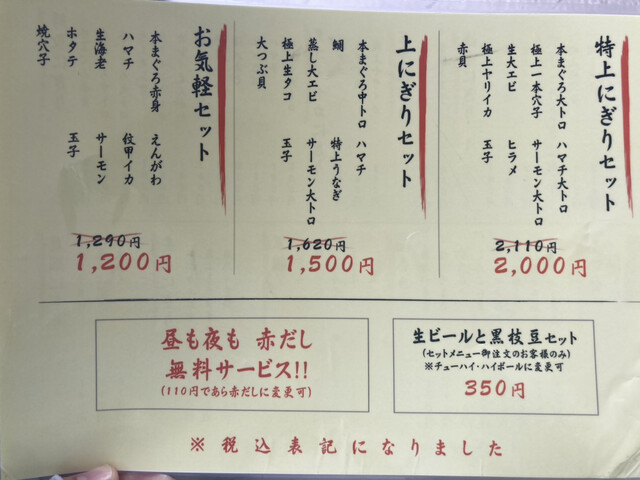 特上にぎりセット
本まぐろ大トロ ハマチ大トロ
極上一本穴子 サーモン大トロ
生大エビ ヒラメ
極上ヤリイカ 玉子
赤貝
2,110円
2,000円
上にぎりセット
本まぐろ中トロ ハマチ
鯛 特上うなぎ
蒸し大エビ サーモン大トロ
極上生タコ 玉子
大つぶ貝
1,620円
1,500円
お気軽セット
本まぐろ赤身 えんがわ
ハマチ 紋甲イカ
生海老 サーモン
ホタテ 玉子
焼穴子
1,290円
1,200円
昼も夜も 赤だし
無料サービス!!
(110円であら赤だしに変更可)
生ビールと黒枝豆セット
(セットメニュー御注文のお客様のみ)
※チューハイ・ハイボールに変更可
350円
※税込表記になりました